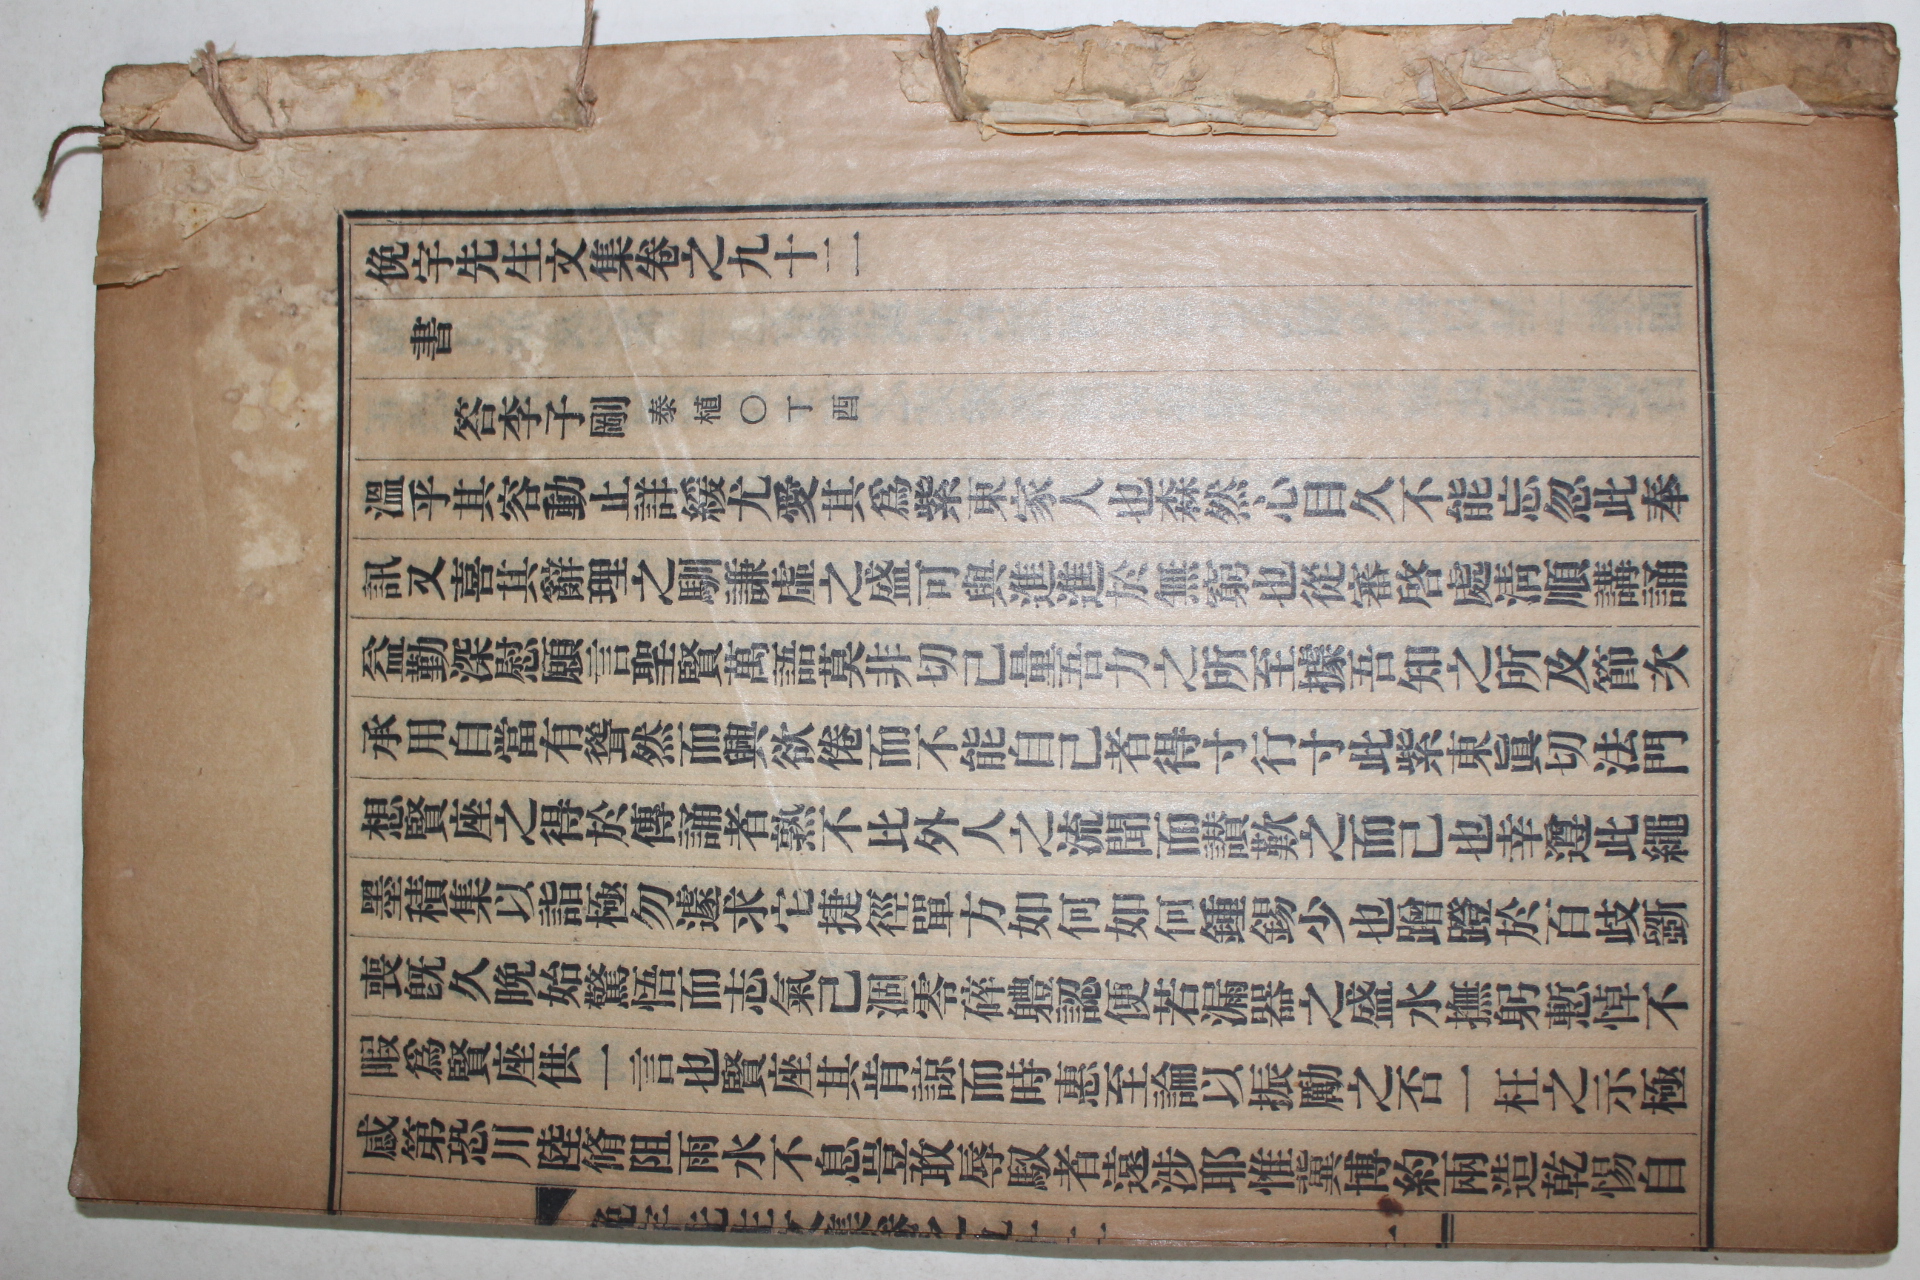 俛宇先生文集卷之九十二
書
答李子剛 泰植○丁酉
溫乎其容動止詳緩尤愛其爲紫東家人也森然心目久不能忘忽此奉
訊又喜其辭理之馴謙虛之盛可與進進於無窮也從審啓處淸順講誦
益勤深慰願言聖賢萬語莫非切己量吾力之所至據吾知之所及節次
承用自當有聳然而興欲倦而不能自已者得寸行寸此紫東眞切法門
想賢座之得於傳誦者熟不比外人之流聞而讚歎之而已也幸遵此繩
墨積集以詣極勿遽求它捷徑單方如何如何鍾錫少也蹭蹬於百歧斲
喪旣久晩始驚悟而志氣已涸零碎軆認便若漏器之盛水撫躬慙悼不
暇爲賢座供一言也賢座其肯諒而時惠至論以振勵之否一枉之示極
感第恐川陸脩阻雨水不息豈敢辱馭者遠涉耶惟冀博約兩造乾惕自
俛宇先生文集卷之九十二 一